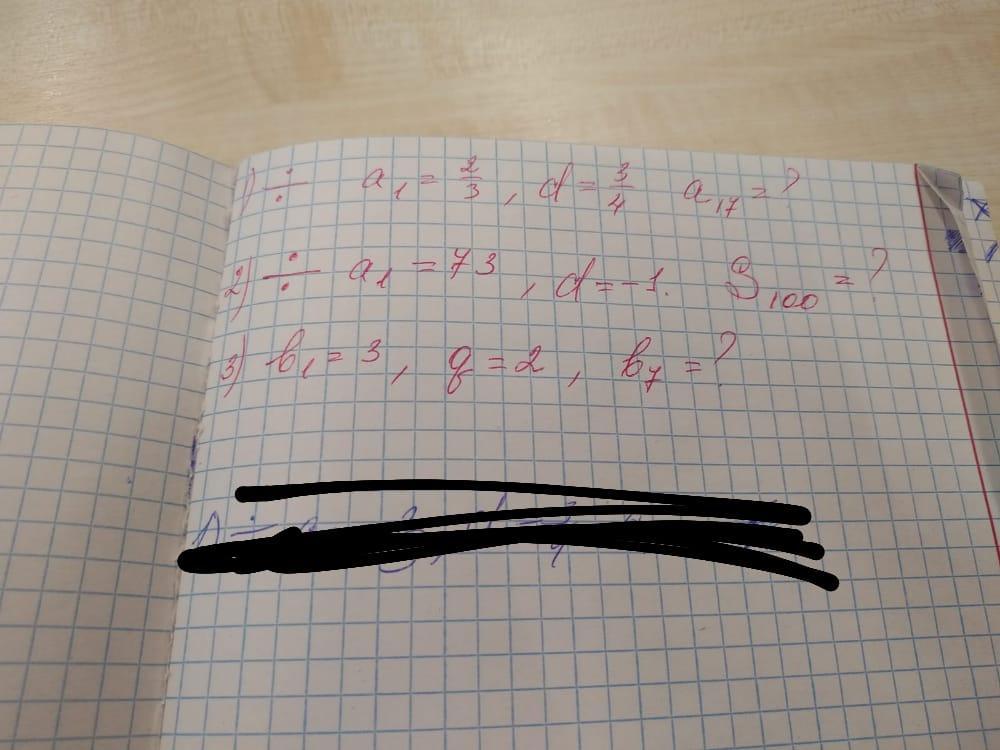 1) ÷ a₁ = 2/3, d = 3/4 a₁₇ = ?
2) ÷ a₁ = 73, d = -1. S₁₀₀ = ?
3) b₁ = 3, q = 2, b₇ = ?